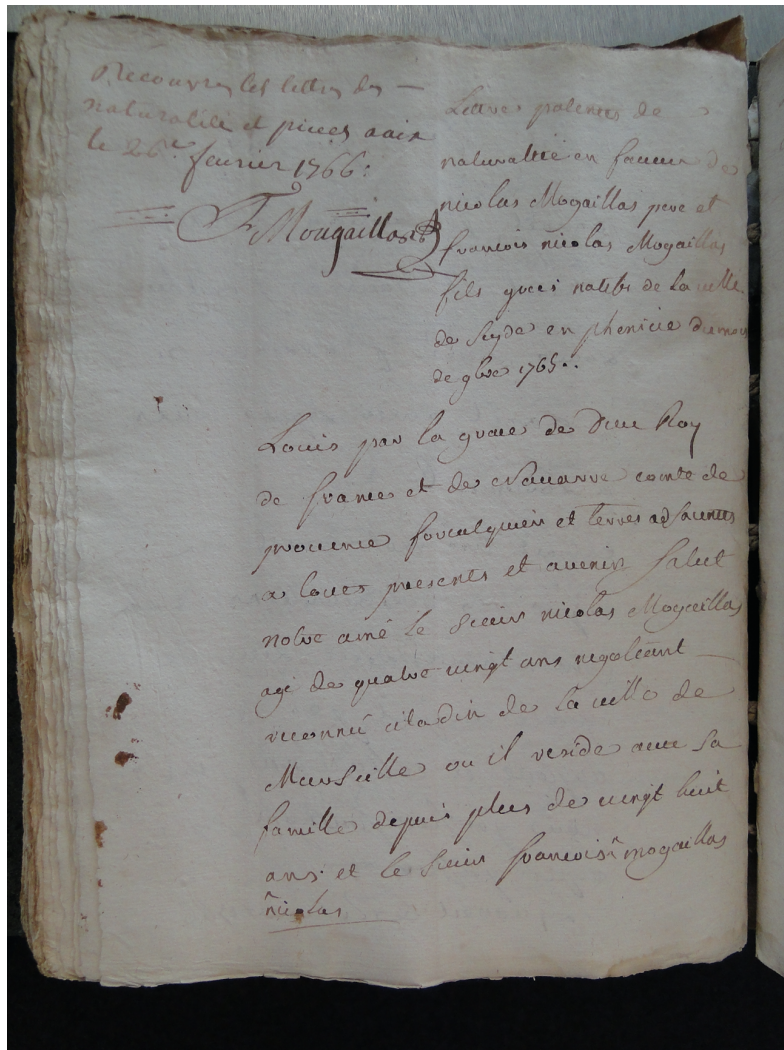 Recouvrey les lettres de
naturalité et pieces a aix
le 26e. fevrier 1766.
F Mougaillas
Lettres patentes de
naturalité en faveur de
nicolas Mogaillas pere et
francois nicolas Mogaillas
fils grecs natifs de la ville
de Seyde en phenicie du mois
de 9bre 1765..
Louis par la grace de Dieu Roy
de france et de Navarre comte de
provence forcalquier et terres adjacentes
a tous presents et avenir Salut
notre amé le Sieur nicolas Mogaillas
agé de quatre vingt ans negotiant
reconnu citadin de la ville de
Marseille ou il reside avec sa
famille depuis plus de vingt huit
ans et le Sieur francois ^ mogaillas
^ nicolas